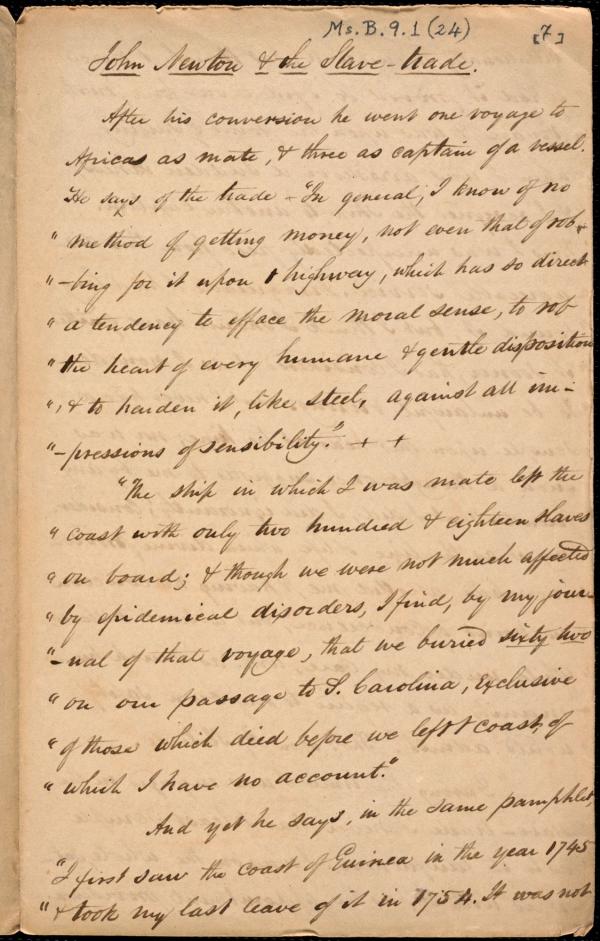 Ms. B. 9. 1 (24)
[7]
John Newton & the Slave-trade.
After his conversion he went one voyage to
Africa as mate, & three as captain of a vessel.
He says of the trade - "In general, I know of no
" method of getting money, not even that of rob-
" -bing for it upon highway, which has so direct
" a tendency to efface the moral sense, to rob
" the heart of every humane & gentle disposition
" , & to harden it, like steel, against all im-
" -pressions of sensibility." + +
"The ship in which I was mate left the
" coast with only two hundred & eighteen slaves
" on board; & though we were not much affected
" by epidemical disorders, I find, by my jour-
" -nal of that voyage, that we buried sixty two
" on our passage to S. Carolina, exclusive
" of those which died before we left coast, of
" which I have no account."
And yet he says, in the same pamphlet,
"I first saw the coast of Guinea in the year 1745
" & took my last leave of it in 1754. It was not